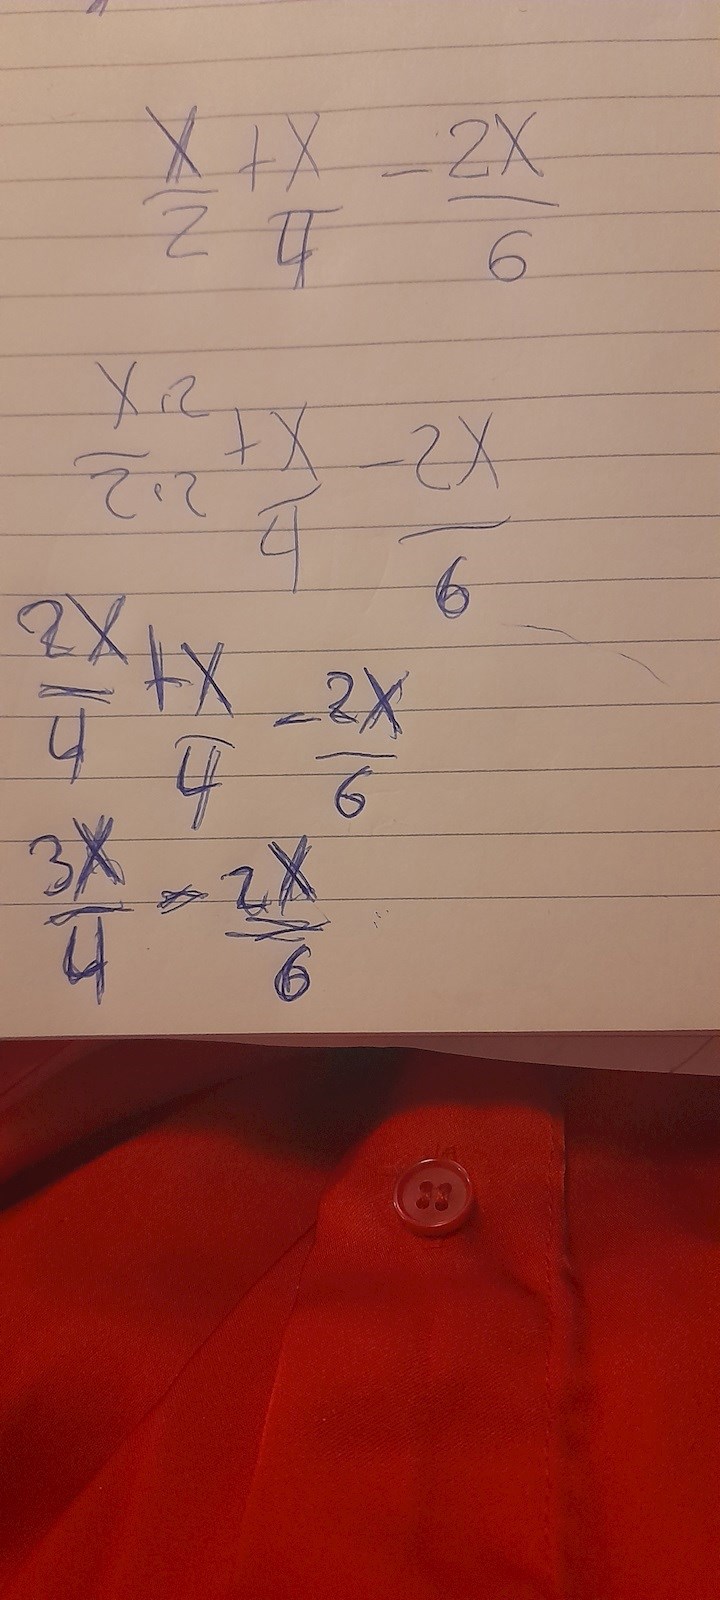 x/2 + x/4 - 2x/6
x·2/2·2 + x/4 - 2x/6
2x/4 + x/4 - 2x/6
3x/4 - 2x/6